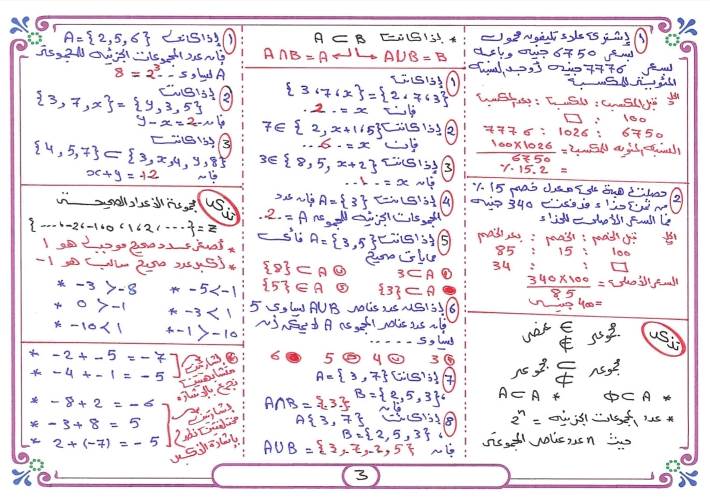 ① إشترى علاء تليفون محمول
بسعر 6750 جنيه وباعه
بسعر 7776 جنيه أوجد النسبة
المئوية للمكسب
الحل قبل المكسب : المكسب : بعد المكسب
100 : □ :
6750 : 1026 : 7776
النسبة المئوية للمكسب = 100×1026 / 6750
= 15.2 %
② حصلت هبة على معدل خصم 15 %
من ثمن حذاء فدفعت 340 جنيه
فما السعر الأصلى للحذاء
الحل قبل الخصم : الخصم : بعد الخصم
100 : 15 : 85
□ : : 34
السعر الأصلى = 340×100 / 85
= 400 جنيه
تذكر
عنصر ∈ ∉ مجموعة
مجموعة ⊂ ⊄ مجموعة
* Φ ⊂ A * A ⊂ A
* عدد المجموعات الجزئية = 2ⁿ
حيث n عدد عناصر المجموعة
* إذا كانت A ⊂ B
A∩B = A ↔ A∪B = B
① إذا كانت
{3,7,x} = {2,7,3}
فإن x = 2
② إذا كانت 7 ∈ {2,x+1,5}
فإن x = 6
③ إذا كانت 3 ∈ {8,5,x+2}
فإن x = 1
④ إذا كانت A = {3} فإن عدد
المجموعات الجزئية للمجموعة A = 2
⑤ إذا كانت A = {3,5} فأى
مما يأتى صحيح
3 ⊂ A {8} ⊂ A
{3} ⊂ A {5} ∈ A
⑥ إذا كان عدد عناصر A∪B يساوى 5
فإن عدد عناصر المجموعة A لا يمكن أن
يساوى .....
3 4 5 6
⑦ إذا كانت A = {3,7}
, B = {2,5,3}
فإن A∩B = {3}
⑧ إذا كانت A{3,7}
, B = {2,5,3}
فإن A∪B = {3,7,2,5}
① إذا كانت A = {2,5,6}
فإن عدد المجموعات الجزئية للمجموعة
A يساوى 2³ = 8
② إذا كانت
{3,7,x} = {y,3,5}
فإن y-x = 2
③ إذا كانت
{4,5,7} ⊂ {3,x,4,y,8}
فإن x+y = 12
تذكر مجموعة الأعداد الصحيحة
Z = {...,-2,-1,0,1,2,...}
* أصغر عدد صحيح موجب هو 1
* أكبر عدد صحيح سالب هو -1
* -3 > -8 * -5 < -1
* 0 > -1 * -3 < 1
* -10 < 1 * -1 > -10
* -2 + -5 = -7
* -4 + -1 = -5
* -8 + 2 = -6
* -3 + 8 = 5
* 2 + (-7) = -5
3